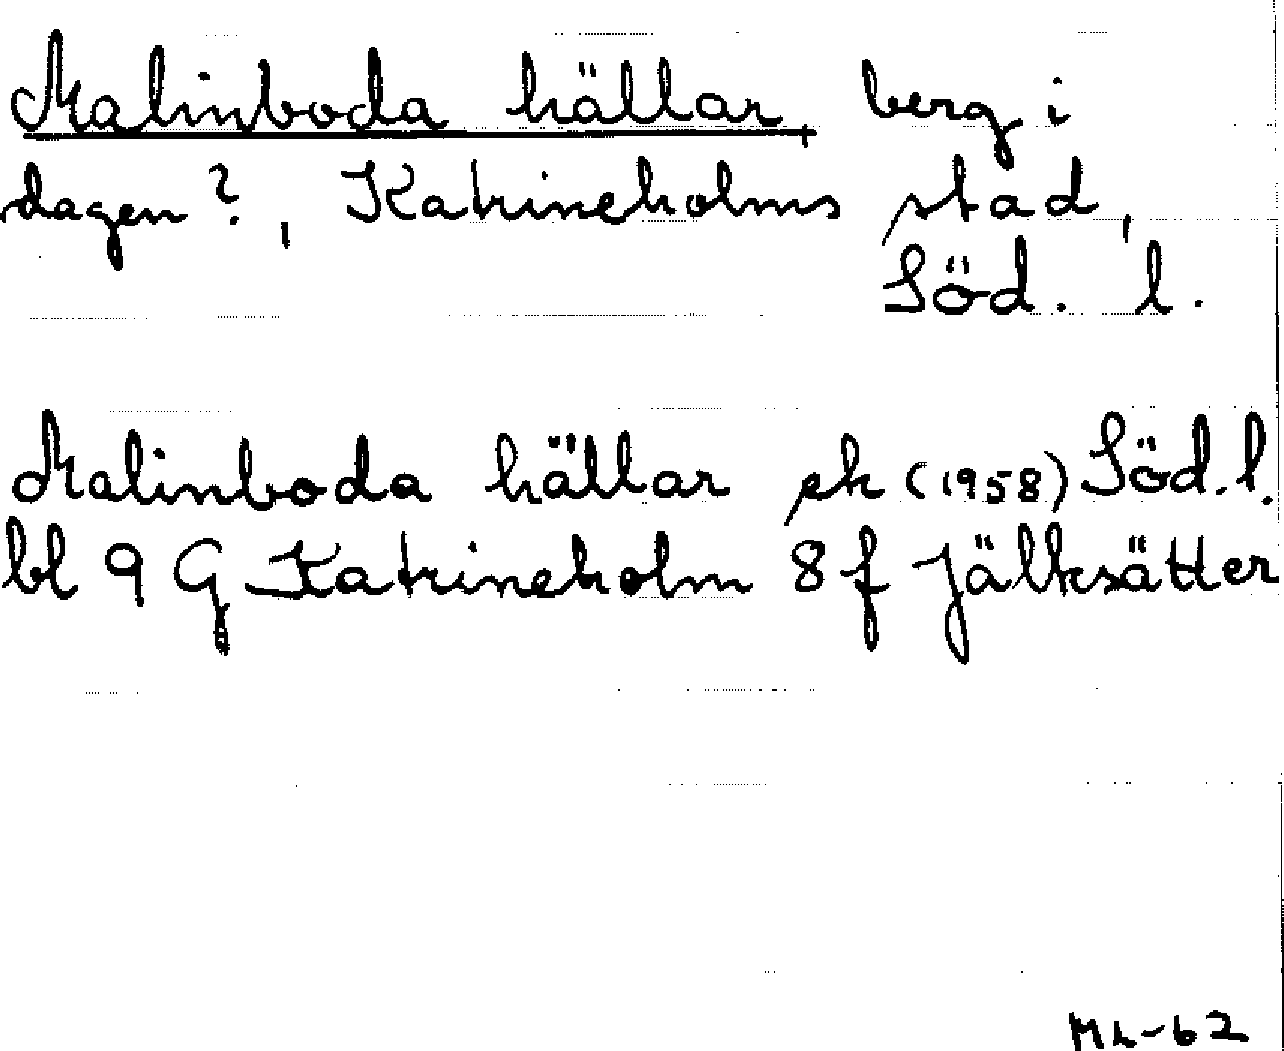 Malinboda hällar, berg i
dagen?, Katrineholms stad,
Söd. l.
Malinboda hällar ek (1958) Söd. l.
bl 9 G Katrineholm 8 f Jälksätter
ML-62